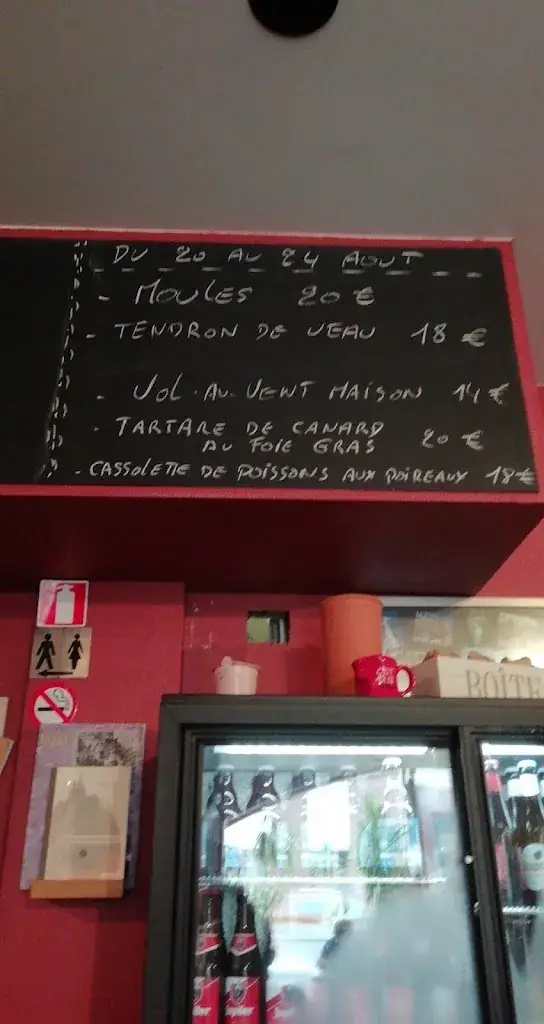 DU 20 AU 24 AOUT
- MOULES 20 €
- TENDRON DE VEAU 18 €
- VOL-AU-VENT MAISON 14 €
- TARTARE DE CANARD
AU FOIE GRAS 20 €
- CASSOLETTE DE POISSONS AUX POIREAUX 18 €
BOÎTE